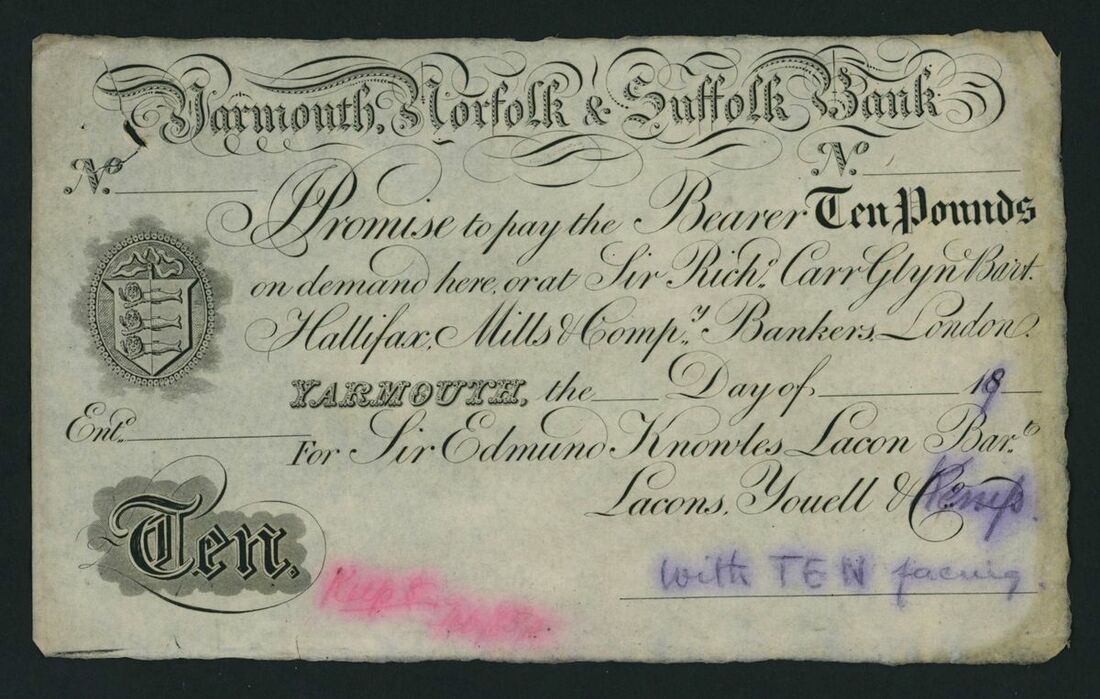 Yarmouth, Norfolk & Suffolk Bank
No. No.
I Promise to pay the Bearer Ten Pounds
on demand here, or at Sir Richd. Carr Glyn Bart.
Hallifax, Mills & Compy. Bankers, London.
YARMOUTH, the Day of 189
Entd.
For Sir Edmund Knowles Lacon Bart.
Lacons, Youell & Co. Kemp.
Ten.
with TEN facing.